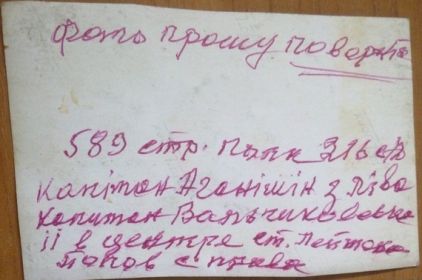 Фото прошу поверт
589 стр. полк 316 с/д
капітан Аганішін з ліва
капитан Вальчиковськ
ІІ в центре ст. Лейтена
Попов справа